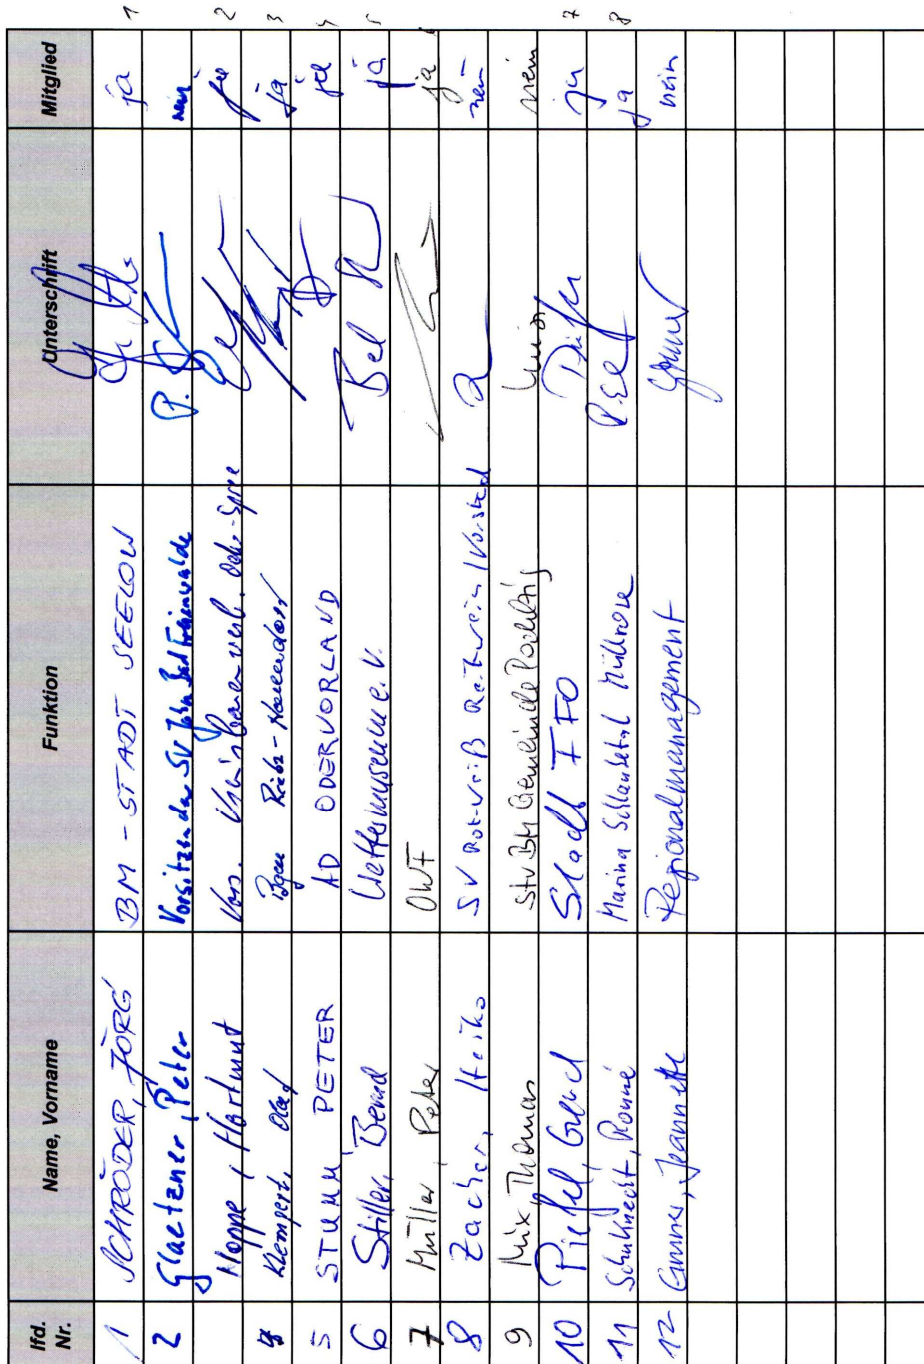 lfd. Nr. Name, Vorname Funktion Unterschrift Mitglied
1 SCHRÖDER, JÖRG BM - STADT SEELOW ja 1
2 Glaetzner, Peter Vorsitzender SV Jahn Bad Freienwalde nein
Hoppe, Hartmut Vors. Kleinbauernverb. Oder-Spree ja 2
Klempert, Olaf ja 3
5 STUMM PETER AD ODERVORLAND ja 4
6 Stiller, Bernd Wettermuseum e.V. ja 5
7 Müller, Peter OWF ja
8 Zacher, Heiko SV Rot-Weiß Reitwein / Vorstand nein
9 Mix, Thomas Stv BM Gemeinde Podelzig nein
10 Stadt FFO ja 7
11 Schuknecht, Ronné Marina Schlaubetal Müllrose ja 8
12 Jeannette Regionalmanagement nein